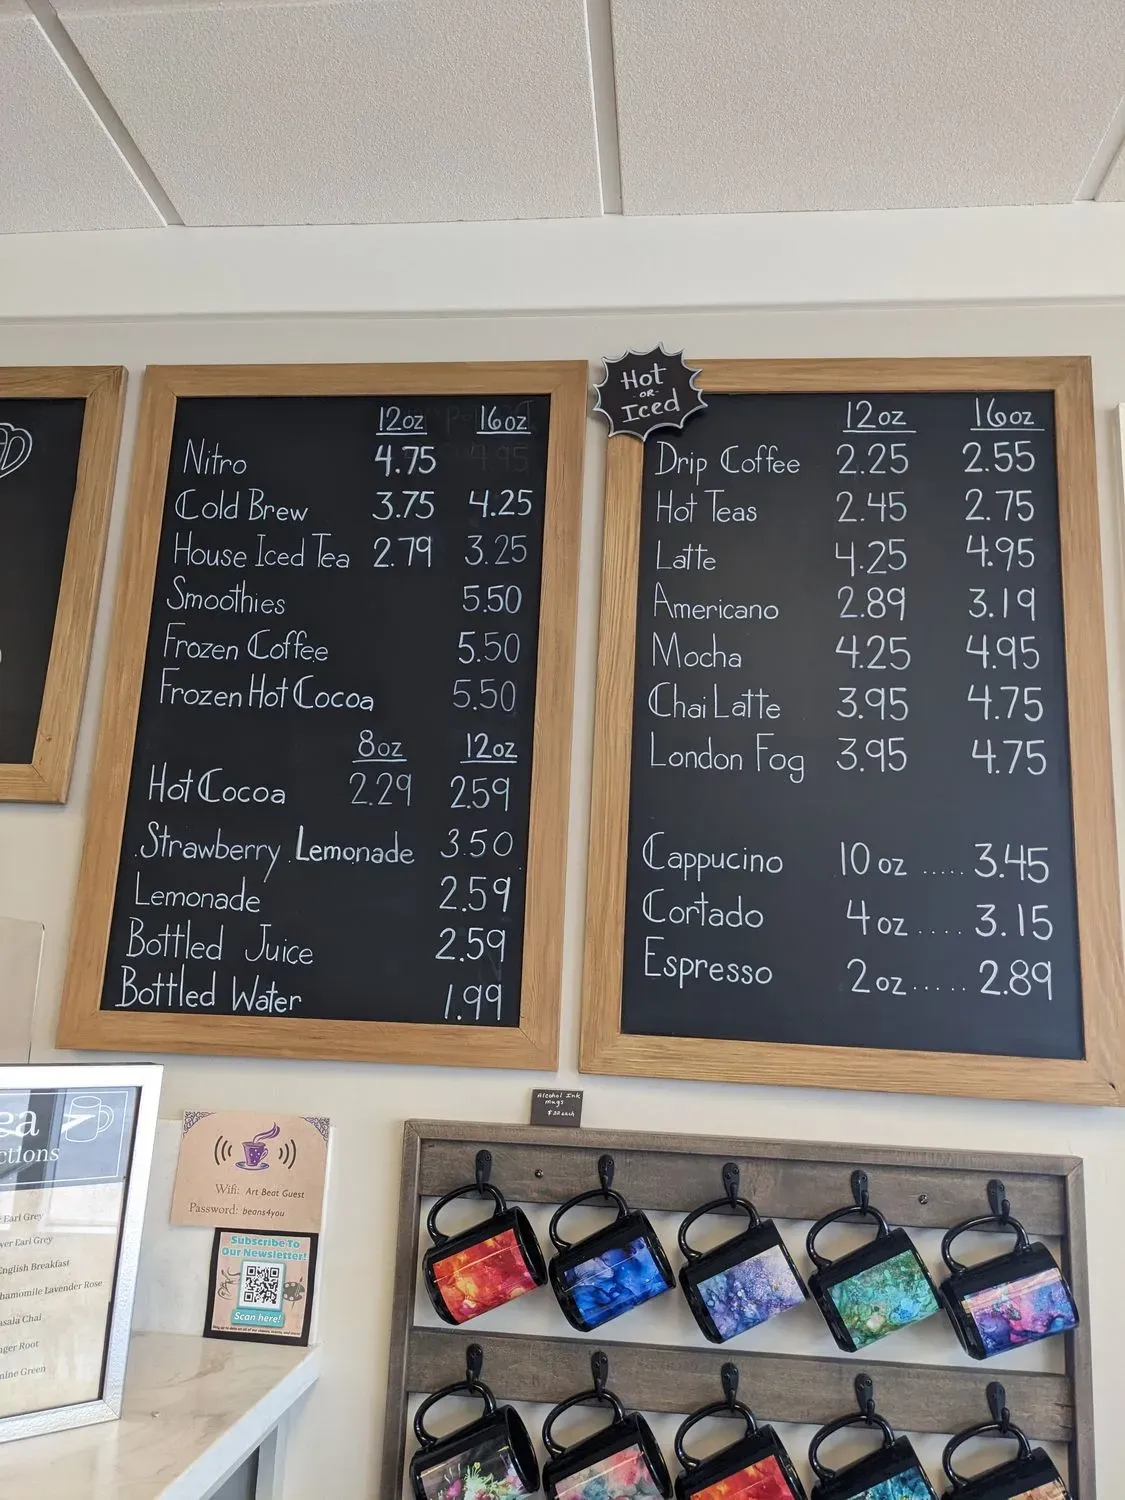 12oz 16oz
Nitro 4.75
Cold Brew 3.75 4.25
House Iced Tea 2.79 3.25
Smoothies 5.50
Frozen Coffee 5.50
Frozen Hot Cocoa 5.50
8oz 12oz
Hot Cocoa 2.29 2.59
Strawberry Lemonade 3.50
Lemonade 2.59
Bottled Juice 2.59
Bottled Water 1.99
Hot
-OR-
Iced
12oz 16oz
Drip Coffee 2.25 2.55
Hot Teas 2.45 2.75
Latte 4.25 4.95
Americano 2.89 3.19
Mocha 4.25 4.95
Chai Latte 3.95 4.75
London Fog 3.95 4.75
Cappucino 10 oz ..... 3.45
Cortado 4 oz .... 3.15
Espresso 2 oz ..... 2.89
Alcohol Ink
mugs
each
Wifi: Art Beat Guest
Password: beans4you
Subscribe To
Our Newsletter!
Scan here!
ea
ctions
Earl Grey
ver Earl Grey
English Breakfast
hamomile Lavender Rose
asala Chai
nger Root
mine Green